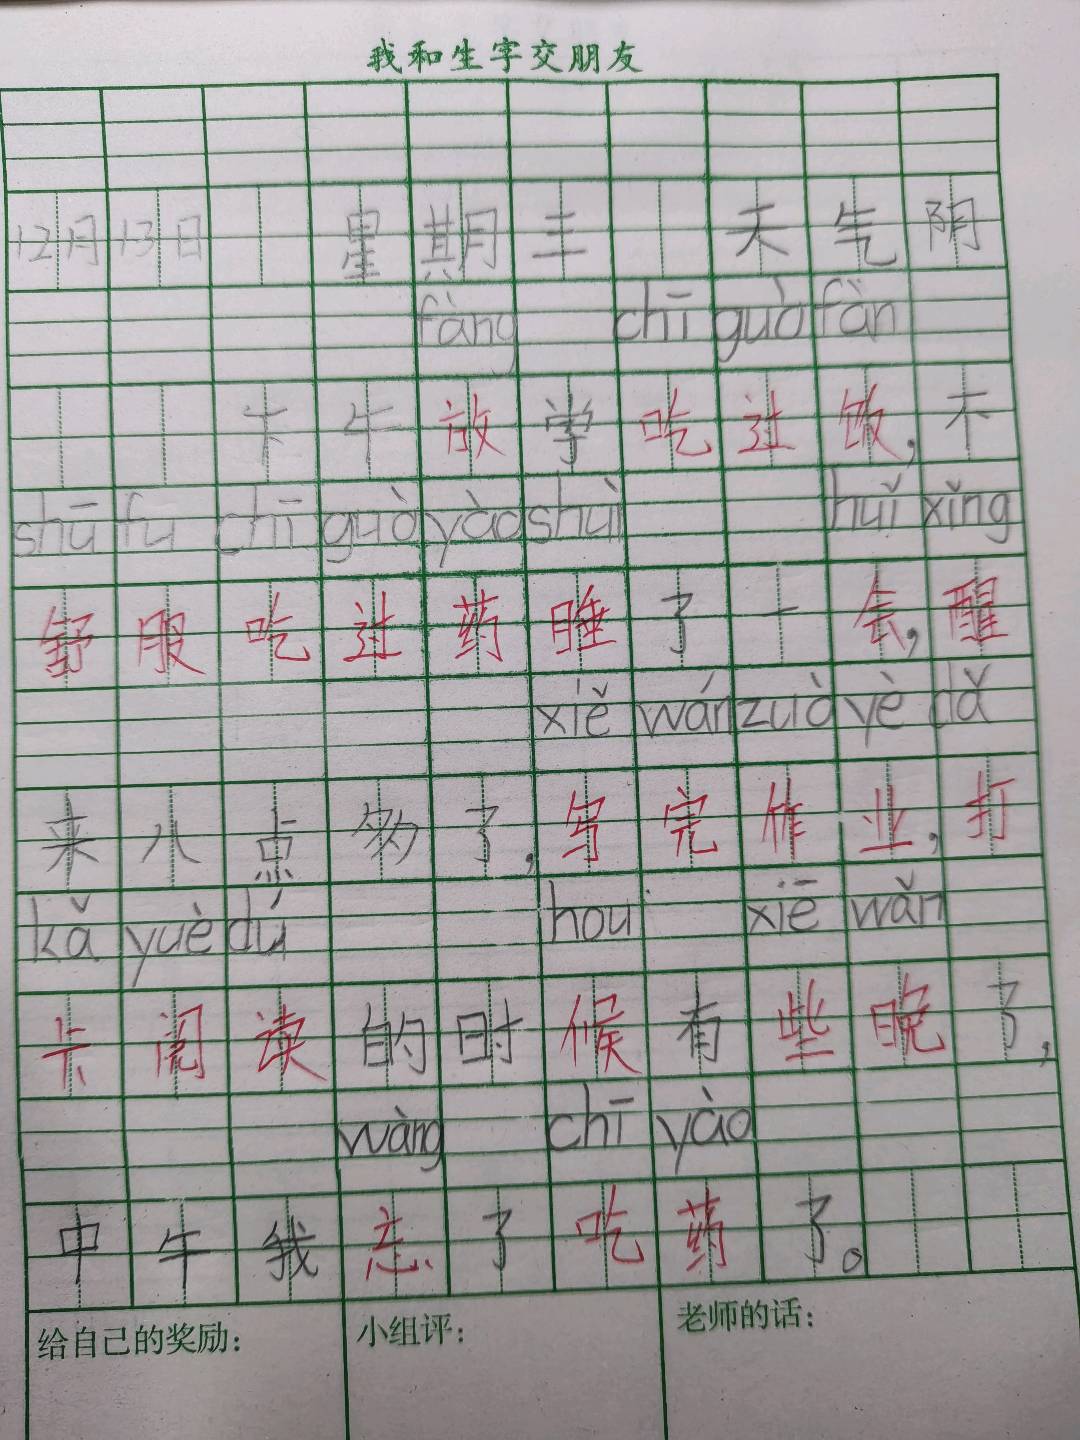 我和生字交朋友
12月13日 星期三 天气阴
fàng chī guò fàn
下午放学吃过饭,不
shū fu chī guò yào shuì huǐ xǐng
舒服吃过药睡了一会,醒
xiě wán zuò yè dǎ
来八点多了,写完作业,打
kǎ yuè dú hou xiē wǎn
卡阅读的时候有些晚了,
wàng chī yào
中午我忘了吃药了。
给自己的奖励: 小组评: 老师的话: